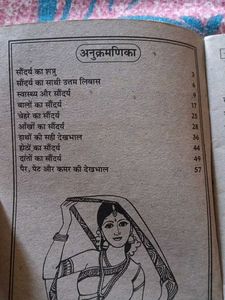 अनुक्रमणिका
सौंदर्य का शत्रु 3
सौंदर्य का साथी उत्तम लिबास 6
स्वास्थ्य और सौंदर्य 9
बालों का सौंदर्य 17
चेहरे का सौंदर्य 25
आँखों का सौंदर्य 28
हाथों की सही देखभाल 36
होठों का सौंदर्य 44
दांतों का सौंदर्य 49
पैर, पेट और कमर की देखभाल 57